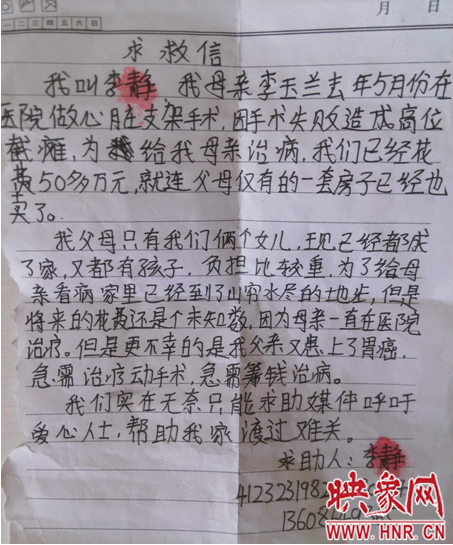 一二三四五六日
月 日
求救信
我叫李静 我母亲李玉兰去年5月份在
医院做心脏支架手术,因手术失败造成高位
截瘫,为给我母亲治病,我们已经花
费50多万元,就连父母仅有的一套房子已经也
卖了。
我父母只有我们俩个女儿,现已经都成
了家,又都有孩子,负担比较重,为了给母
亲看病家里已经到了山穷水尽的地步,但是
将来的花费还是个未知数,因为母亲一直在医院
治疗。但是更不幸的是我父亲又患上了胃癌,
急需治疗动手术,急需筹钱治病。
我们实在无奈只能求助媒体呼吁
爱心人士,帮助我家渡过难关。
求助人:李静
412323198
1360849
映象网
WWW.HNR.CN